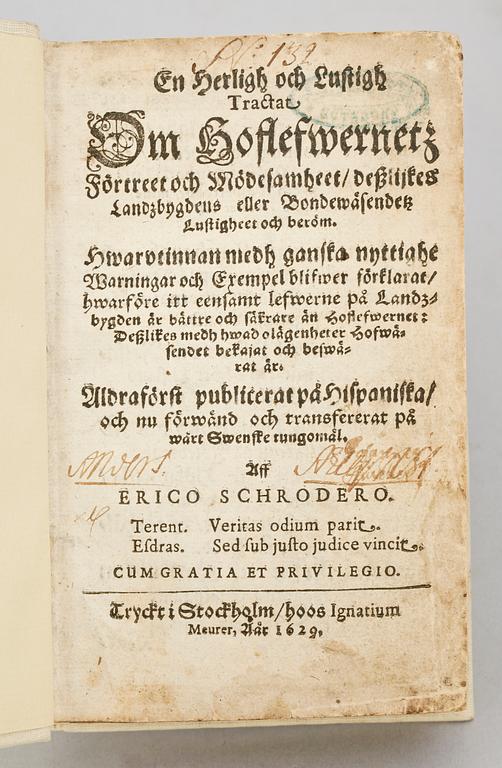 No. 132
En Herligh och Lustigh
Tractat
Om Hoflefwernetz
Förtreet och Mödesamheet/ deßlijkes
Landzbygdens eller Bondewäsendetz
Lustigheet och beröm.
Hwarvtinnan medh ganska nyttighe
Warningar och Exempel blifwer förklarat/
hwarföre itt eensamt lefwerne på Landz-
bygden är bättre och säkrare än Hoflefwernet:
Deßlikes medh hwad olägenheter Hofwä-
sendet bekajat och beswä-
rat är.
Aldraförst publicerat på Hispaniska/
och nu förwänd och transfererat på
wårt Swenske tungomål.
Anders
Aff
ERICO SCHRODERO.
Terent. Veritas odium parit.
Esdras. Sed sub justo judice vincit.
CUM GRATIA ET PRIVILEGIO.
Tryckt i Stockholm/ hoos Ignatium
Meurer, Åår 1629.